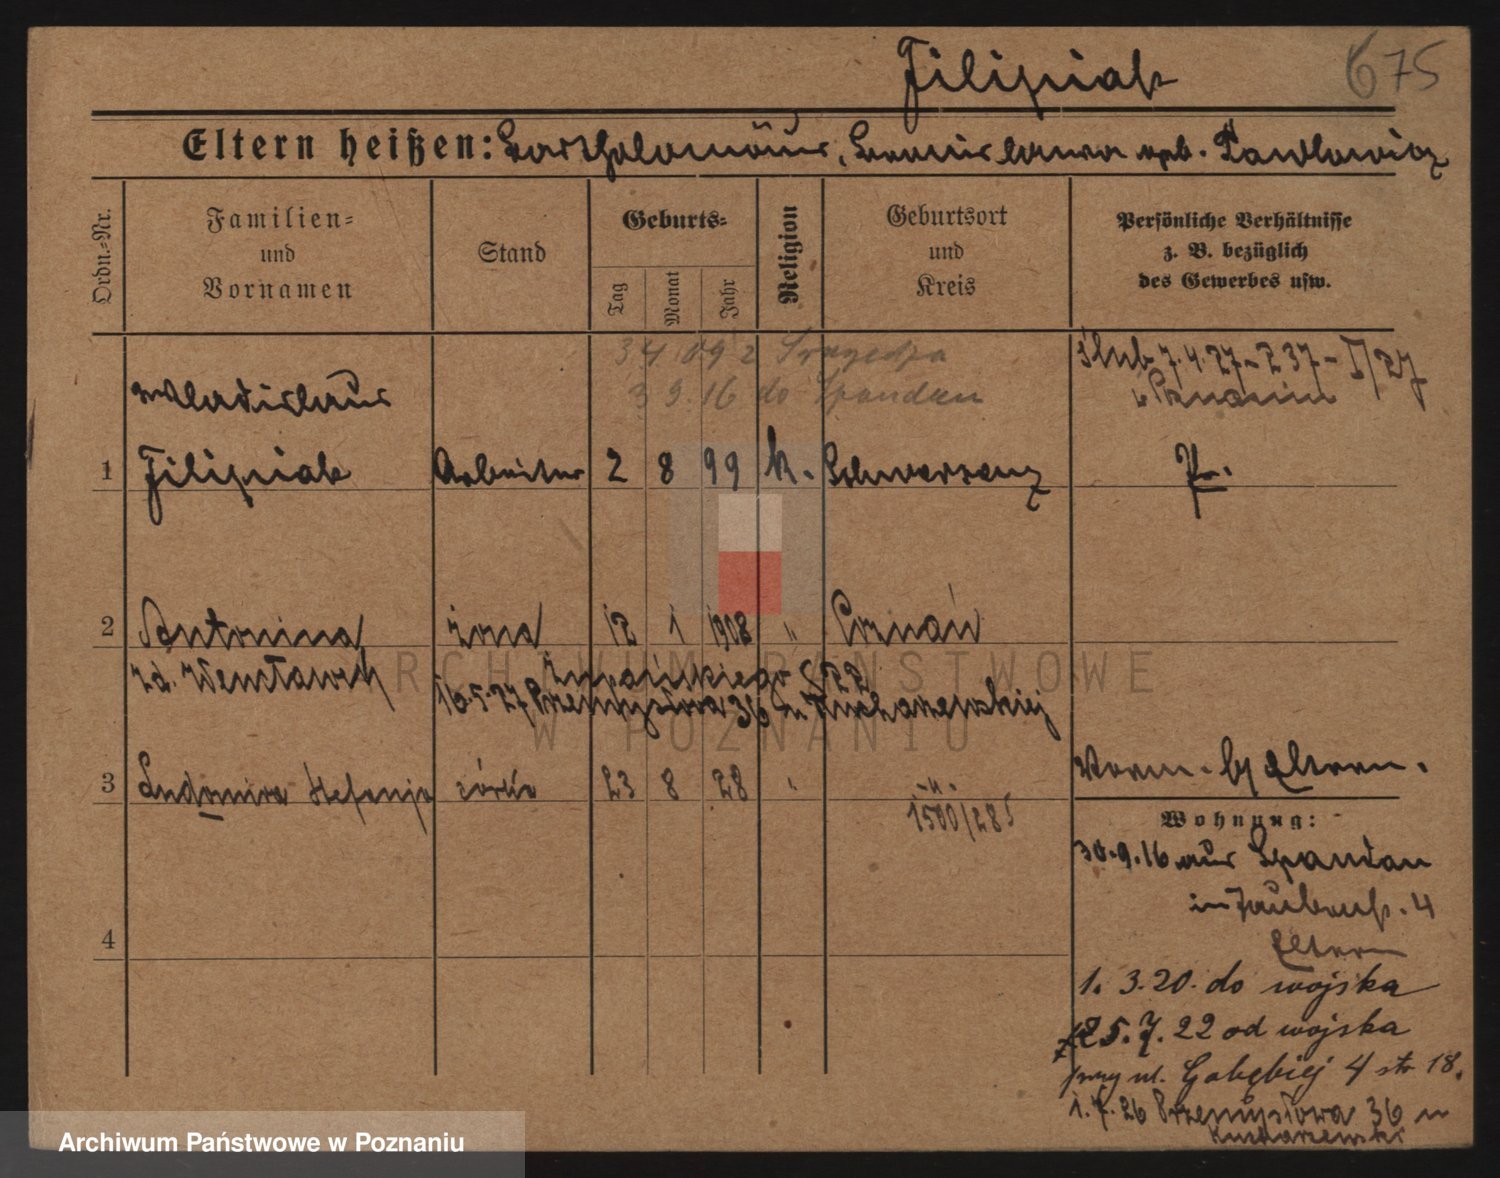 Filipiak 675
Eltern heißen: Bartholomäus, Bronislawa geb. Pawlowicz
Ordn.-Nr.
Familien-
und
Vornamen
Stand
Geburts-
Tag
Monat
Jahr
Religion
Geburtsort
und
Kreis
Persönliche Verhältnisse
z. B. bezüglich
des Gewerbes usw.
ślub 7.4.27
w Poznaniu
3.9.16 do Spandau
Wladislaus
1 Filipiak Arbeiter 2 8 99 k. Schwersenz
2 Antonina żona 12 1 1908 " Poznań
zd.
Żupańskiego 22
16.5.27 Przemysłowa 36 u Kucharzewskiej
3 Ludomira Stefanja córka 23 8 28 " - " -
1500/28
4
Vorm. b/ Eltern.
Wohnung:
30.9.16 aus Spandau
in Taubenstr. 4
Eltern
1. 3. 20. do wojska
25. 7. 22 od wojska
przy ul. Gołębiej 4 str 18.
1. 7. 26 Przemysłowa 36 u
Kucharzewski
ARCHIWUM PAŃSTWOWE
W POZNANIU
Archiwum Państwowe w Poznaniu